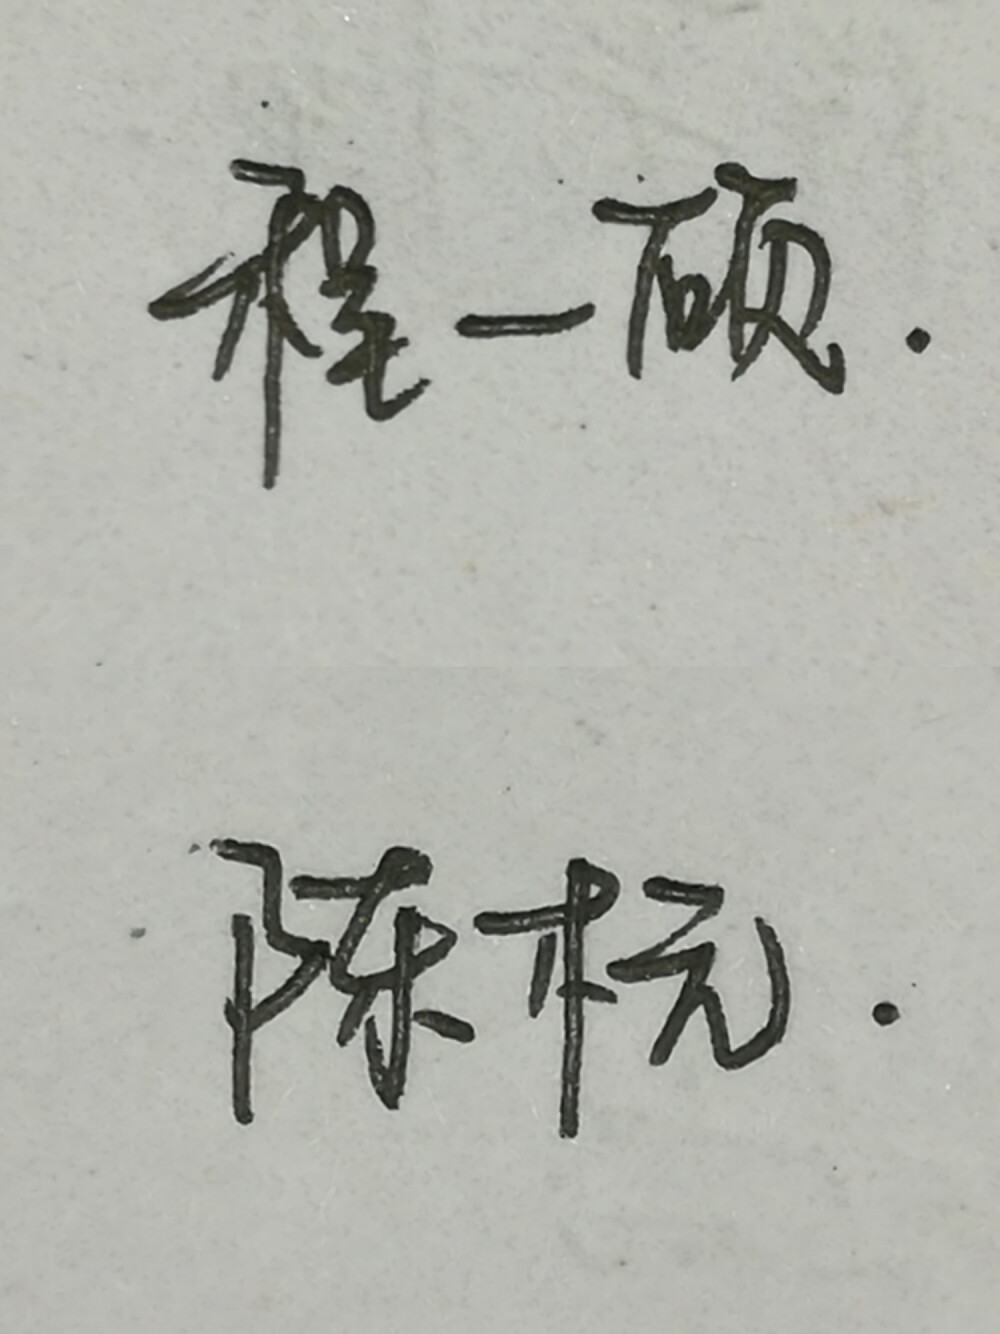 程一硕.
陈杬.